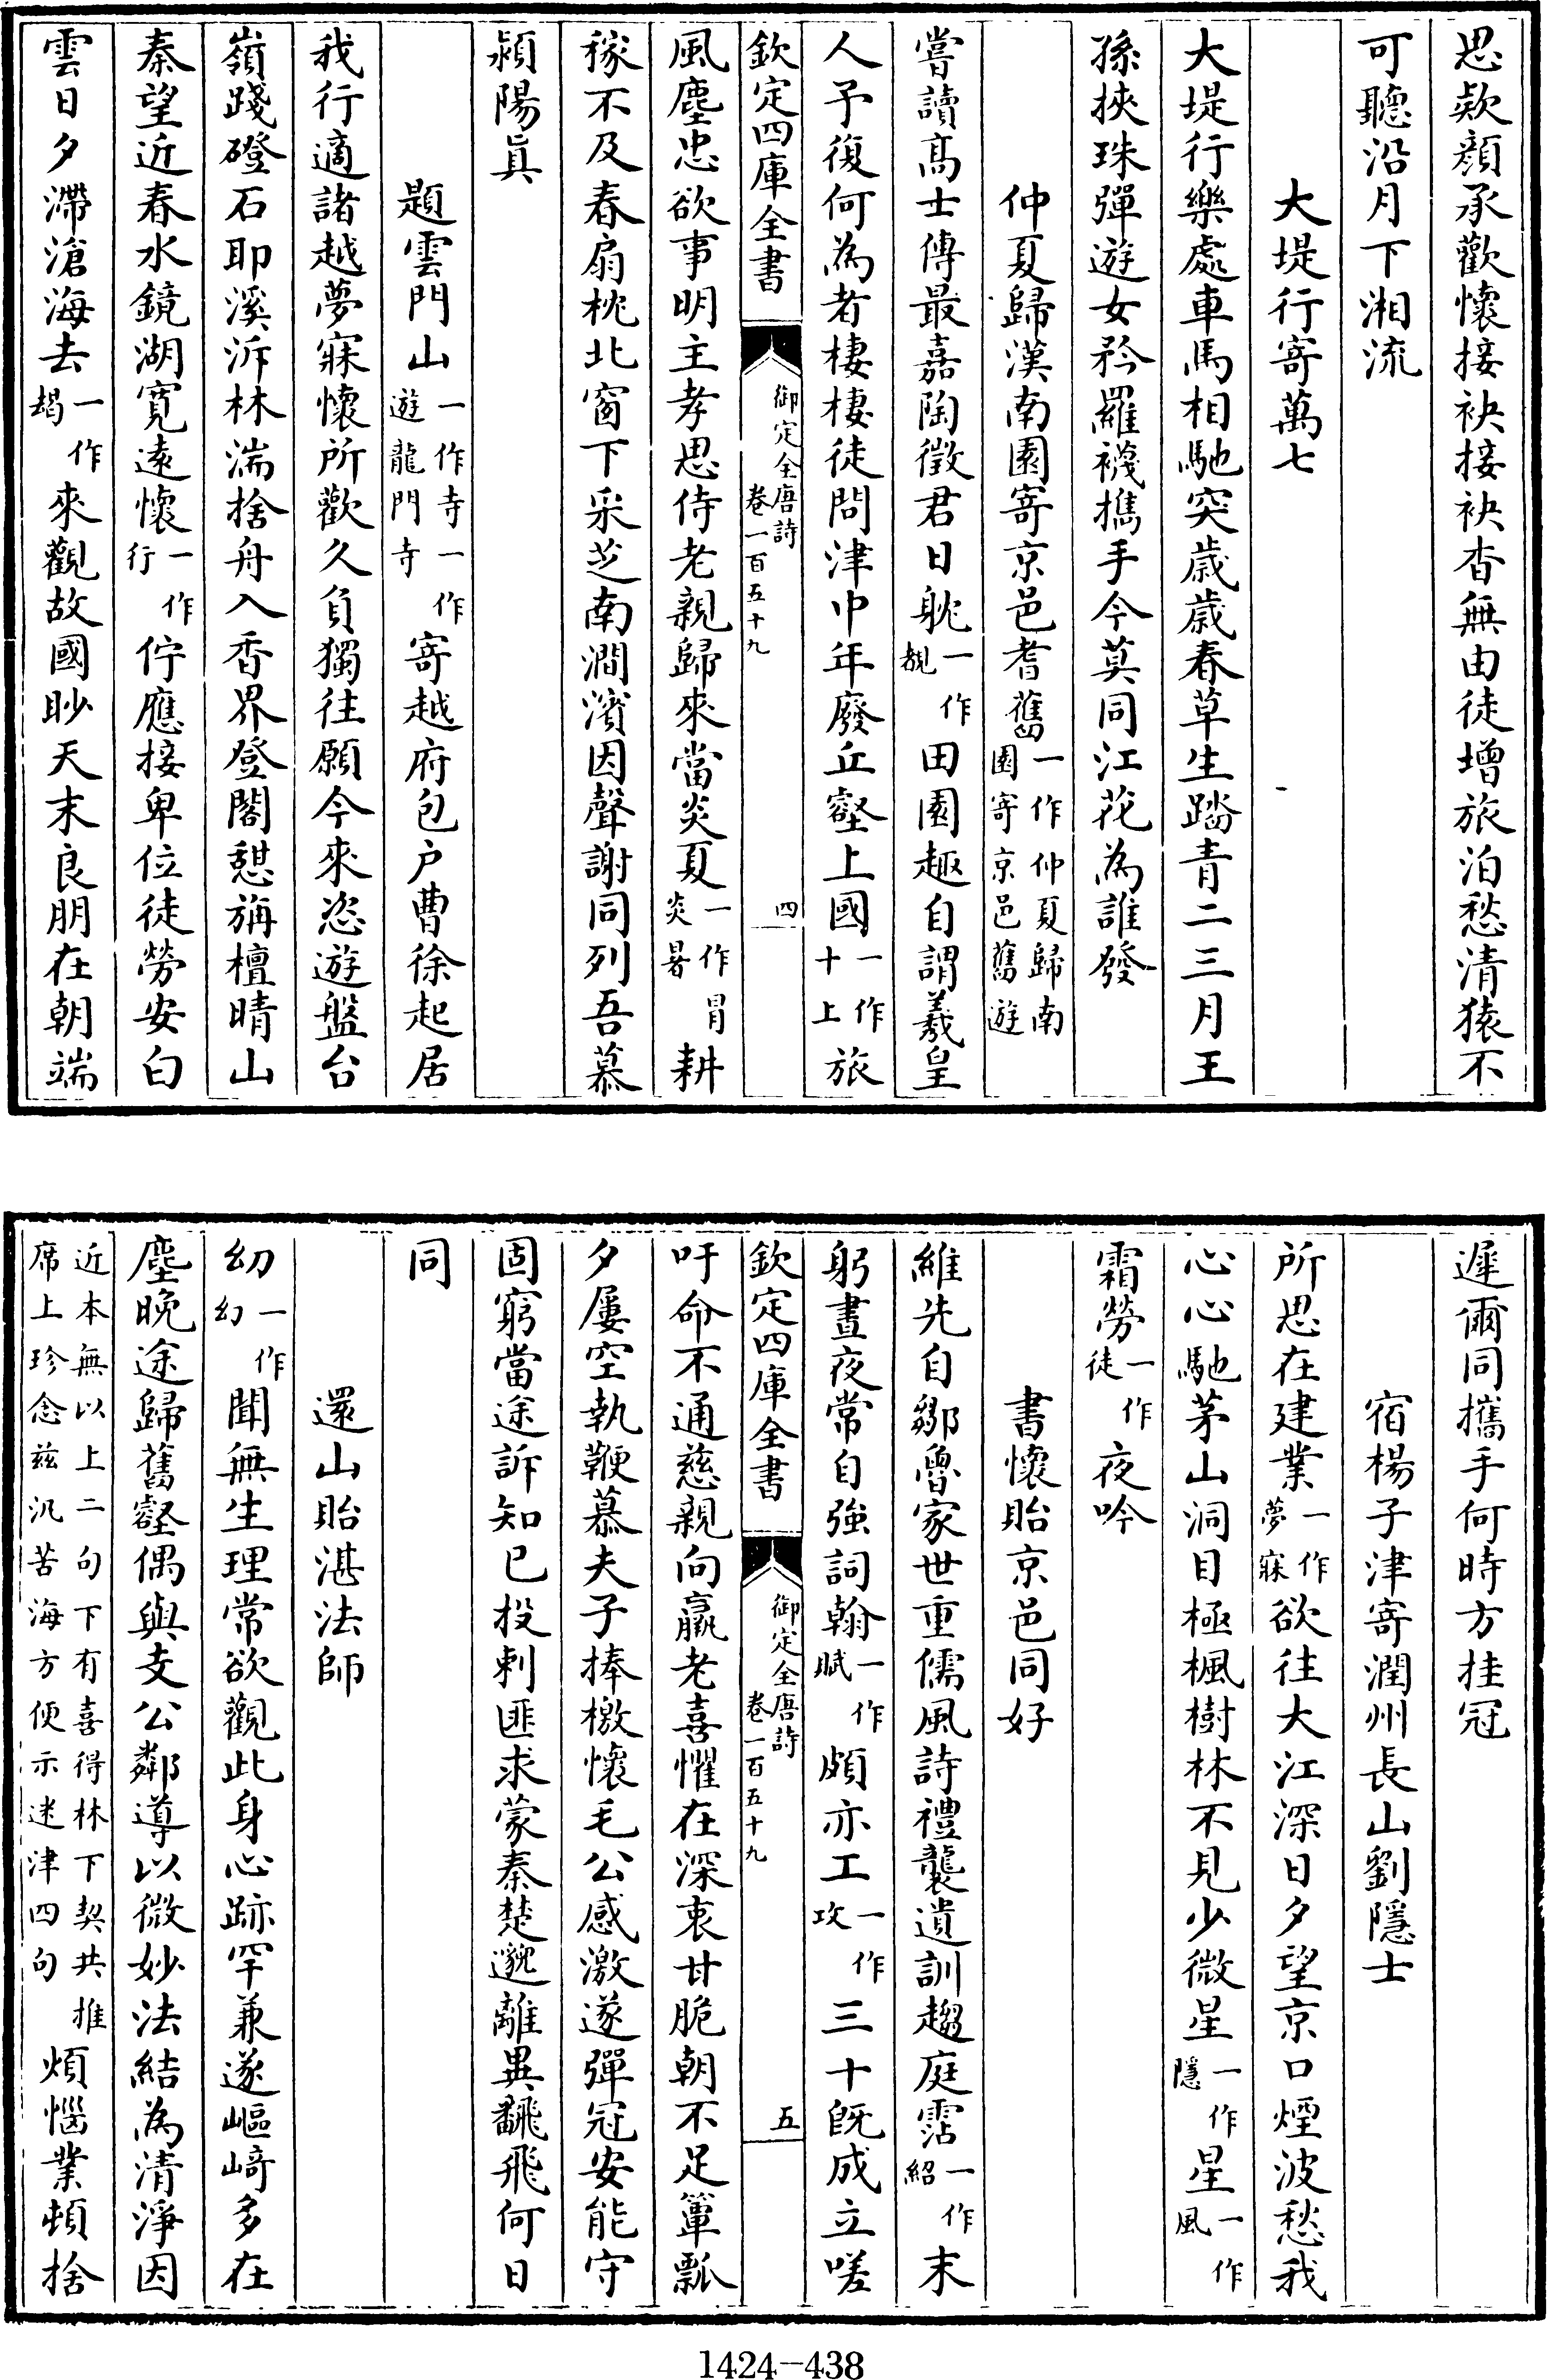 思欵顔承歡懷接袂接袂杳無由徒增旅泊愁清猿不
可聽沿月下湘流
大堤行寄萬七
大堤行樂處車馬相馳突歲歲春草生踏青二三月王
孫挾珠彈遊女矜羅襪攜手今莫同江花為誰發
仲夏歸漢南園寄京邑耆舊一作仲夏歸南園寄京邑舊遊
嘗讀髙士傳最嘉陶徵君日躭一作覩田園趣自謂羲皇
人予復何為者棲棲徒問津中年廢丘壑上國一作十上旅
欽定四庫全書 御定全唐詩卷一百五十九 四
風塵忠欲事明主孝思侍老親歸來當炎夏一作冒炎暑耕
稼不及春扇枕北窗下采芝南澗濱因聲謝同列吾慕
潁陽真
題雲門山一作寺一作遊龍門寺寄越府包户曹徐起居
我行適諸越夢寐懷所歡久負獨往願今來恣遊盤台
嶺踐磴石耶溪泝林湍捨舟入香界登閣憇旃檀晴山
秦望近春水鏡湖寛遠懷一作行佇應接卑位徒勞安白
雲日夕滯滄海去一作朅來觀故國眇天末良朋在朝端
遲爾同攜手何時方挂冠
宿楊子津寄潤州長山劉隱士
所思在建業一作夢寐欲往大江深日夕望京口煙波愁我
心心馳茅山洞目極楓樹林不見少微星一作隱星一作風
霜勞一作徒夜吟
書懷貽京邑同好
維先自鄒魯家世重儒風詩禮襲遺訓趨庭霑一作紹末
躬晝夜常自強詞翰一作賦頗亦工一作攻三十旣成立嗟
欽定四庫全書 御定全唐詩卷一百五十九 五
吁命不通慈親向羸老喜懼在深衷甘脆朝不足簞瓢
夕屢空執鞭慕夫子捧檄懷毛公感激遂彈冠安能守
固窮當途訴知己投刺匪求蒙秦楚邈離異翻飛何日
同
還山貽湛法師
幼一作幻聞無生理常欲觀此身心跡罕兼遂嶇﨑多在
塵晚途歸舊壑偶與支公鄰導以微妙法結為清淨因
近本無以上二句下有喜得林下契共推席上珍念兹汎苦海方便示迷津四句煩惱業頓捨
1424-438